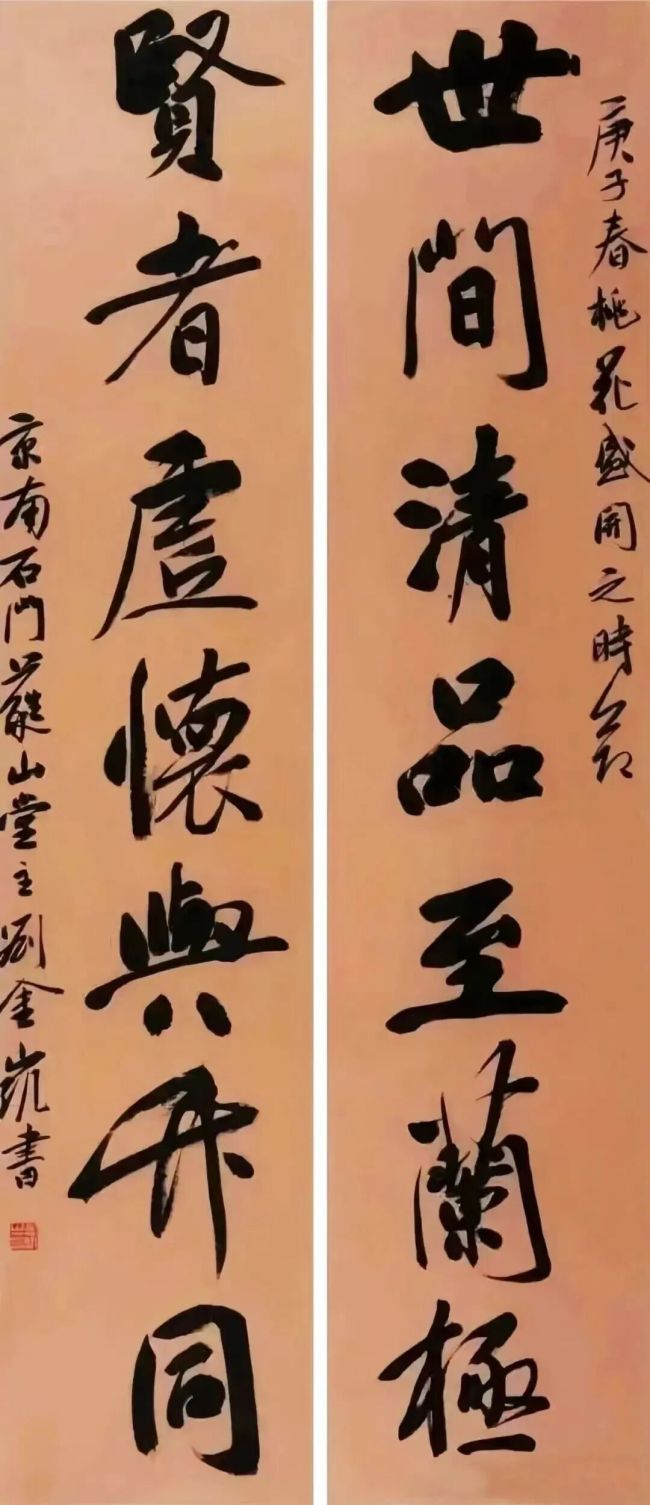 庚子春桃花盛開之時節
世間清品至蘭極
賢者虛懷與竹同
京南石門羆山堂主劉金凱書